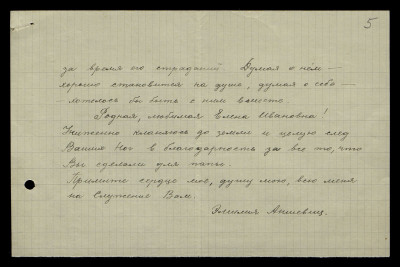 5
за время его страданий. Думая о нём —
хорошо становится на душе, думая о себе —
хотелось бы быть с ним вместе.
Родная, любимая Елена Ивановна!
Униженно кланяюсь до земли и целую след
Ваших Ног в благодарность за все то, что
Вы сделали для папы.
Примите сердце моё, душу мою, всю меня
на Служение Вам.